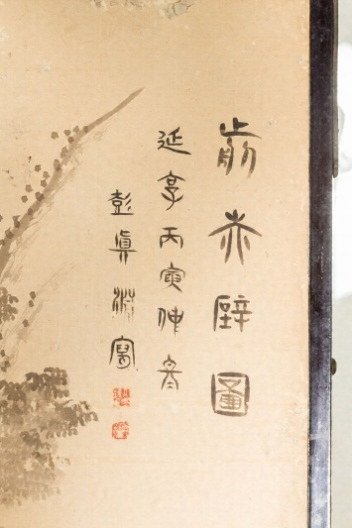 前赤壁圖
延享丙寅仲冬
彭真淵寫